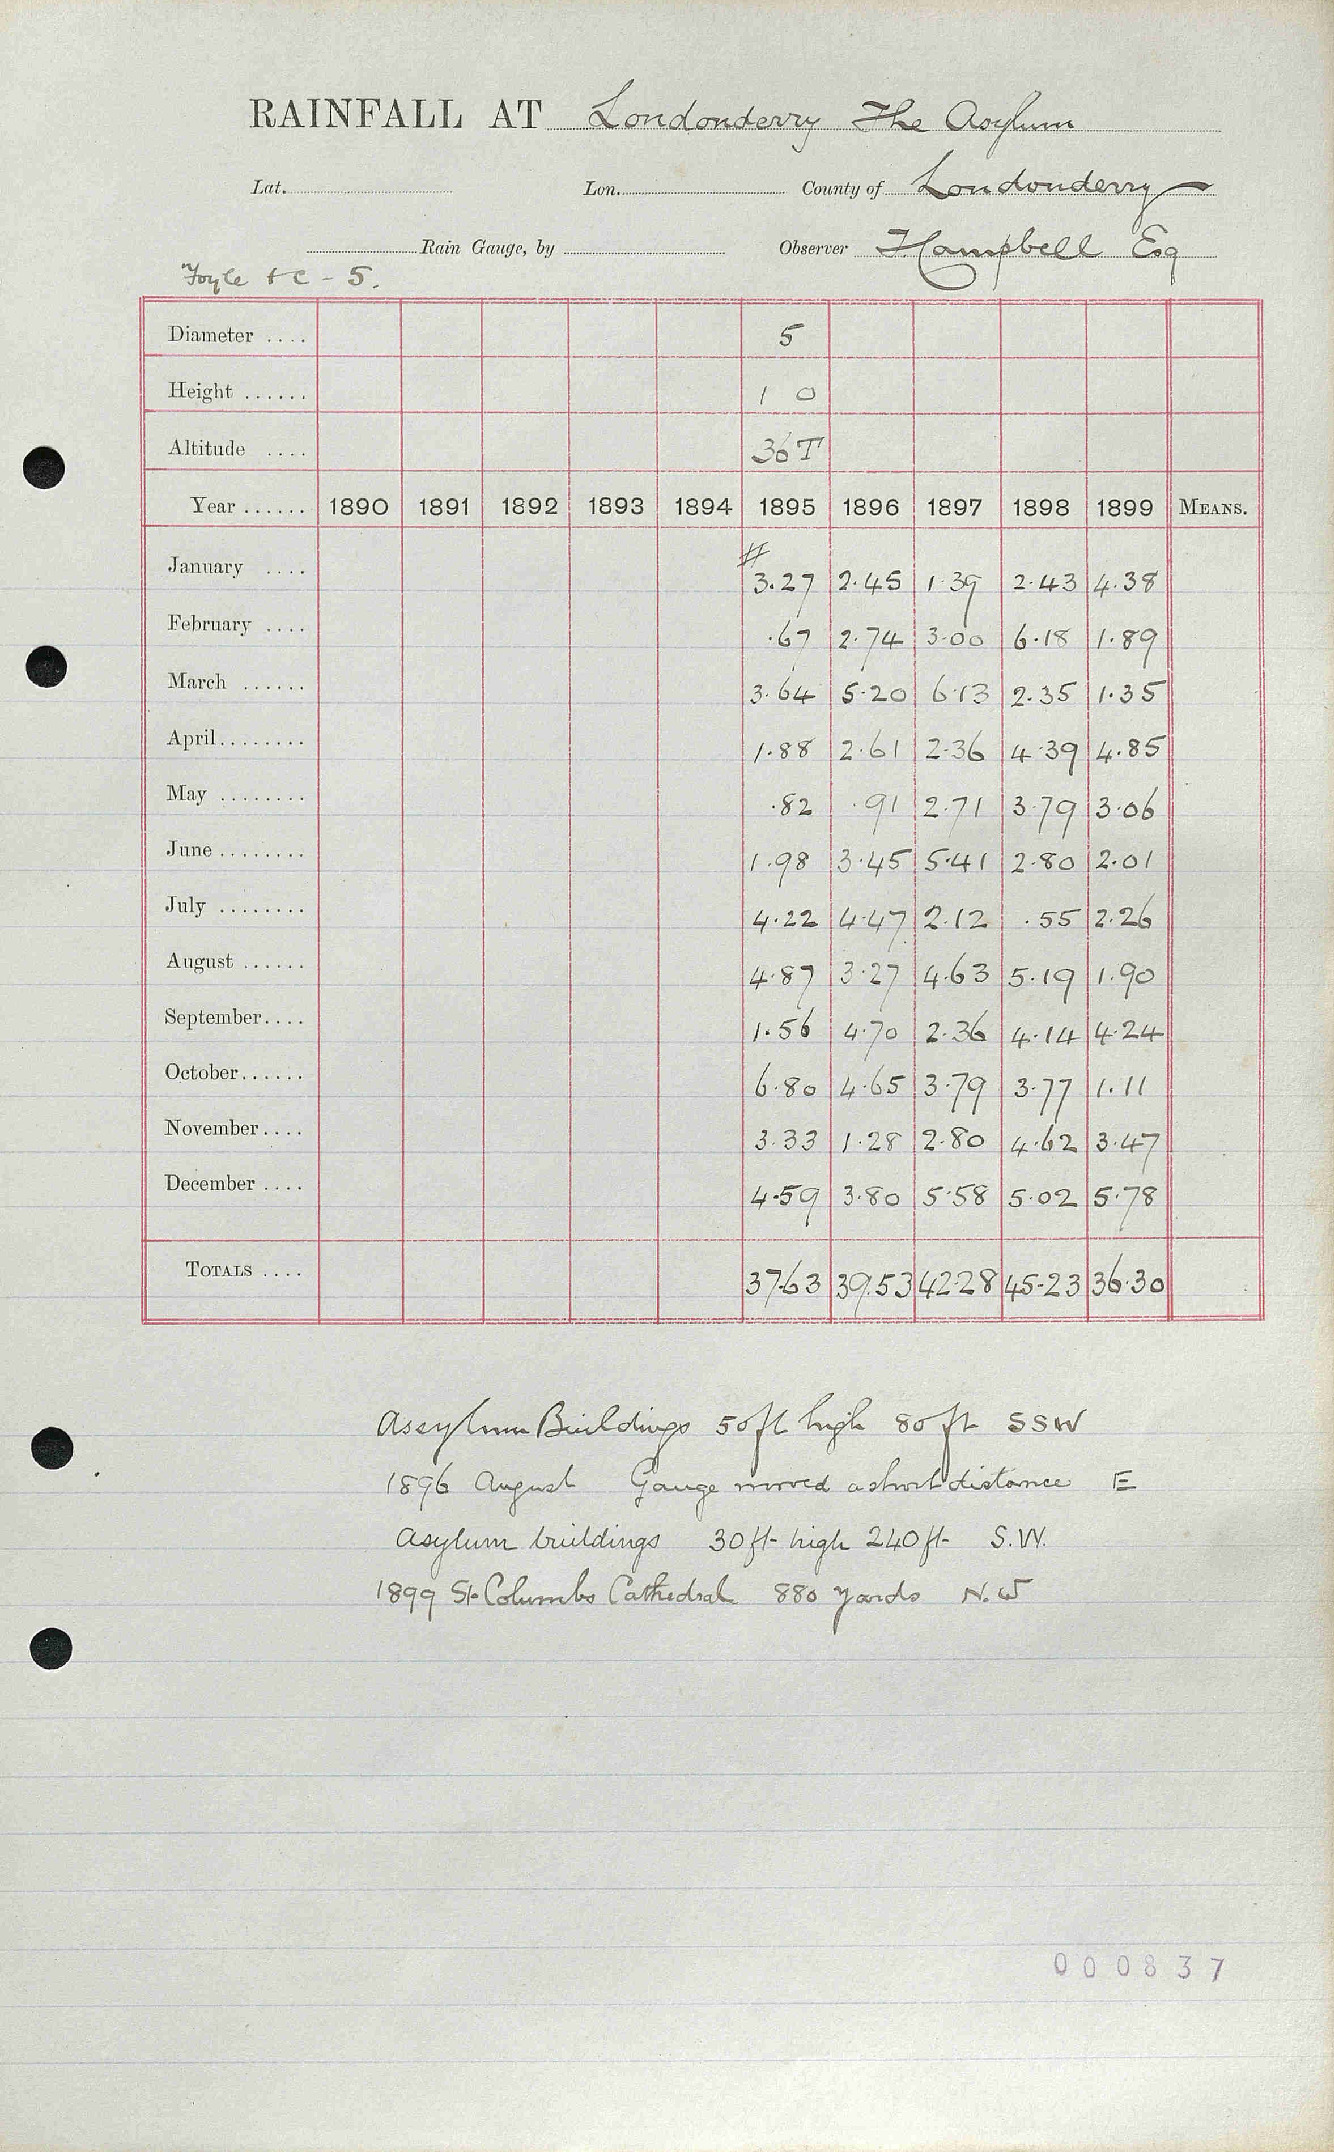 RAINFALL AT Londonderry The Asylum
Lat. Lon. County of Londonderry
Rain Gauge, by Observer F. Campbell Esq
Foyle &c - 5.
Diameter .... 5
Height ...... 1 0
Altitude .... 36 T
Year ...... 1890 1891 1892 1893 1894 1895 1896 1897 1898 1899 MEANS.
#
January .... 3.27 2.45 1.39 2.43 4.38
February .... .67 2.74 3.00 6.18 1.89
March ...... 3.64 5.20 6.13 2.35 1.35
April........ 1.88 2.61 2.36 4.39 4.85
May ........ .82 .91 2.71 3.79 3.06
June ........ 1.98 3.45 5.41 2.80 2.01
July ........ 4.22 4.47 2.12 .55 2.26
August ...... 4.87 3.27 4.63 5.19 1.90
September.... 1.56 4.70 2.36 4.14 4.24
October...... 6.80 4.65 3.79 3.77 1.11
November.... 3.33 1.28 2.80 4.62 3.47
December .... 4.59 3.80 5.58 5.02 5.78
TOTALS .... 37.63 39.53 42.28 45.23 36.30
Aseylum Buildings 50 ft high 80 ft SSW
1896 August Gauge moved a short distance E
Asylum buildings 30 ft high 240 ft S.W.
1899 St Columbs Cathedral 880 yards N.W
000837